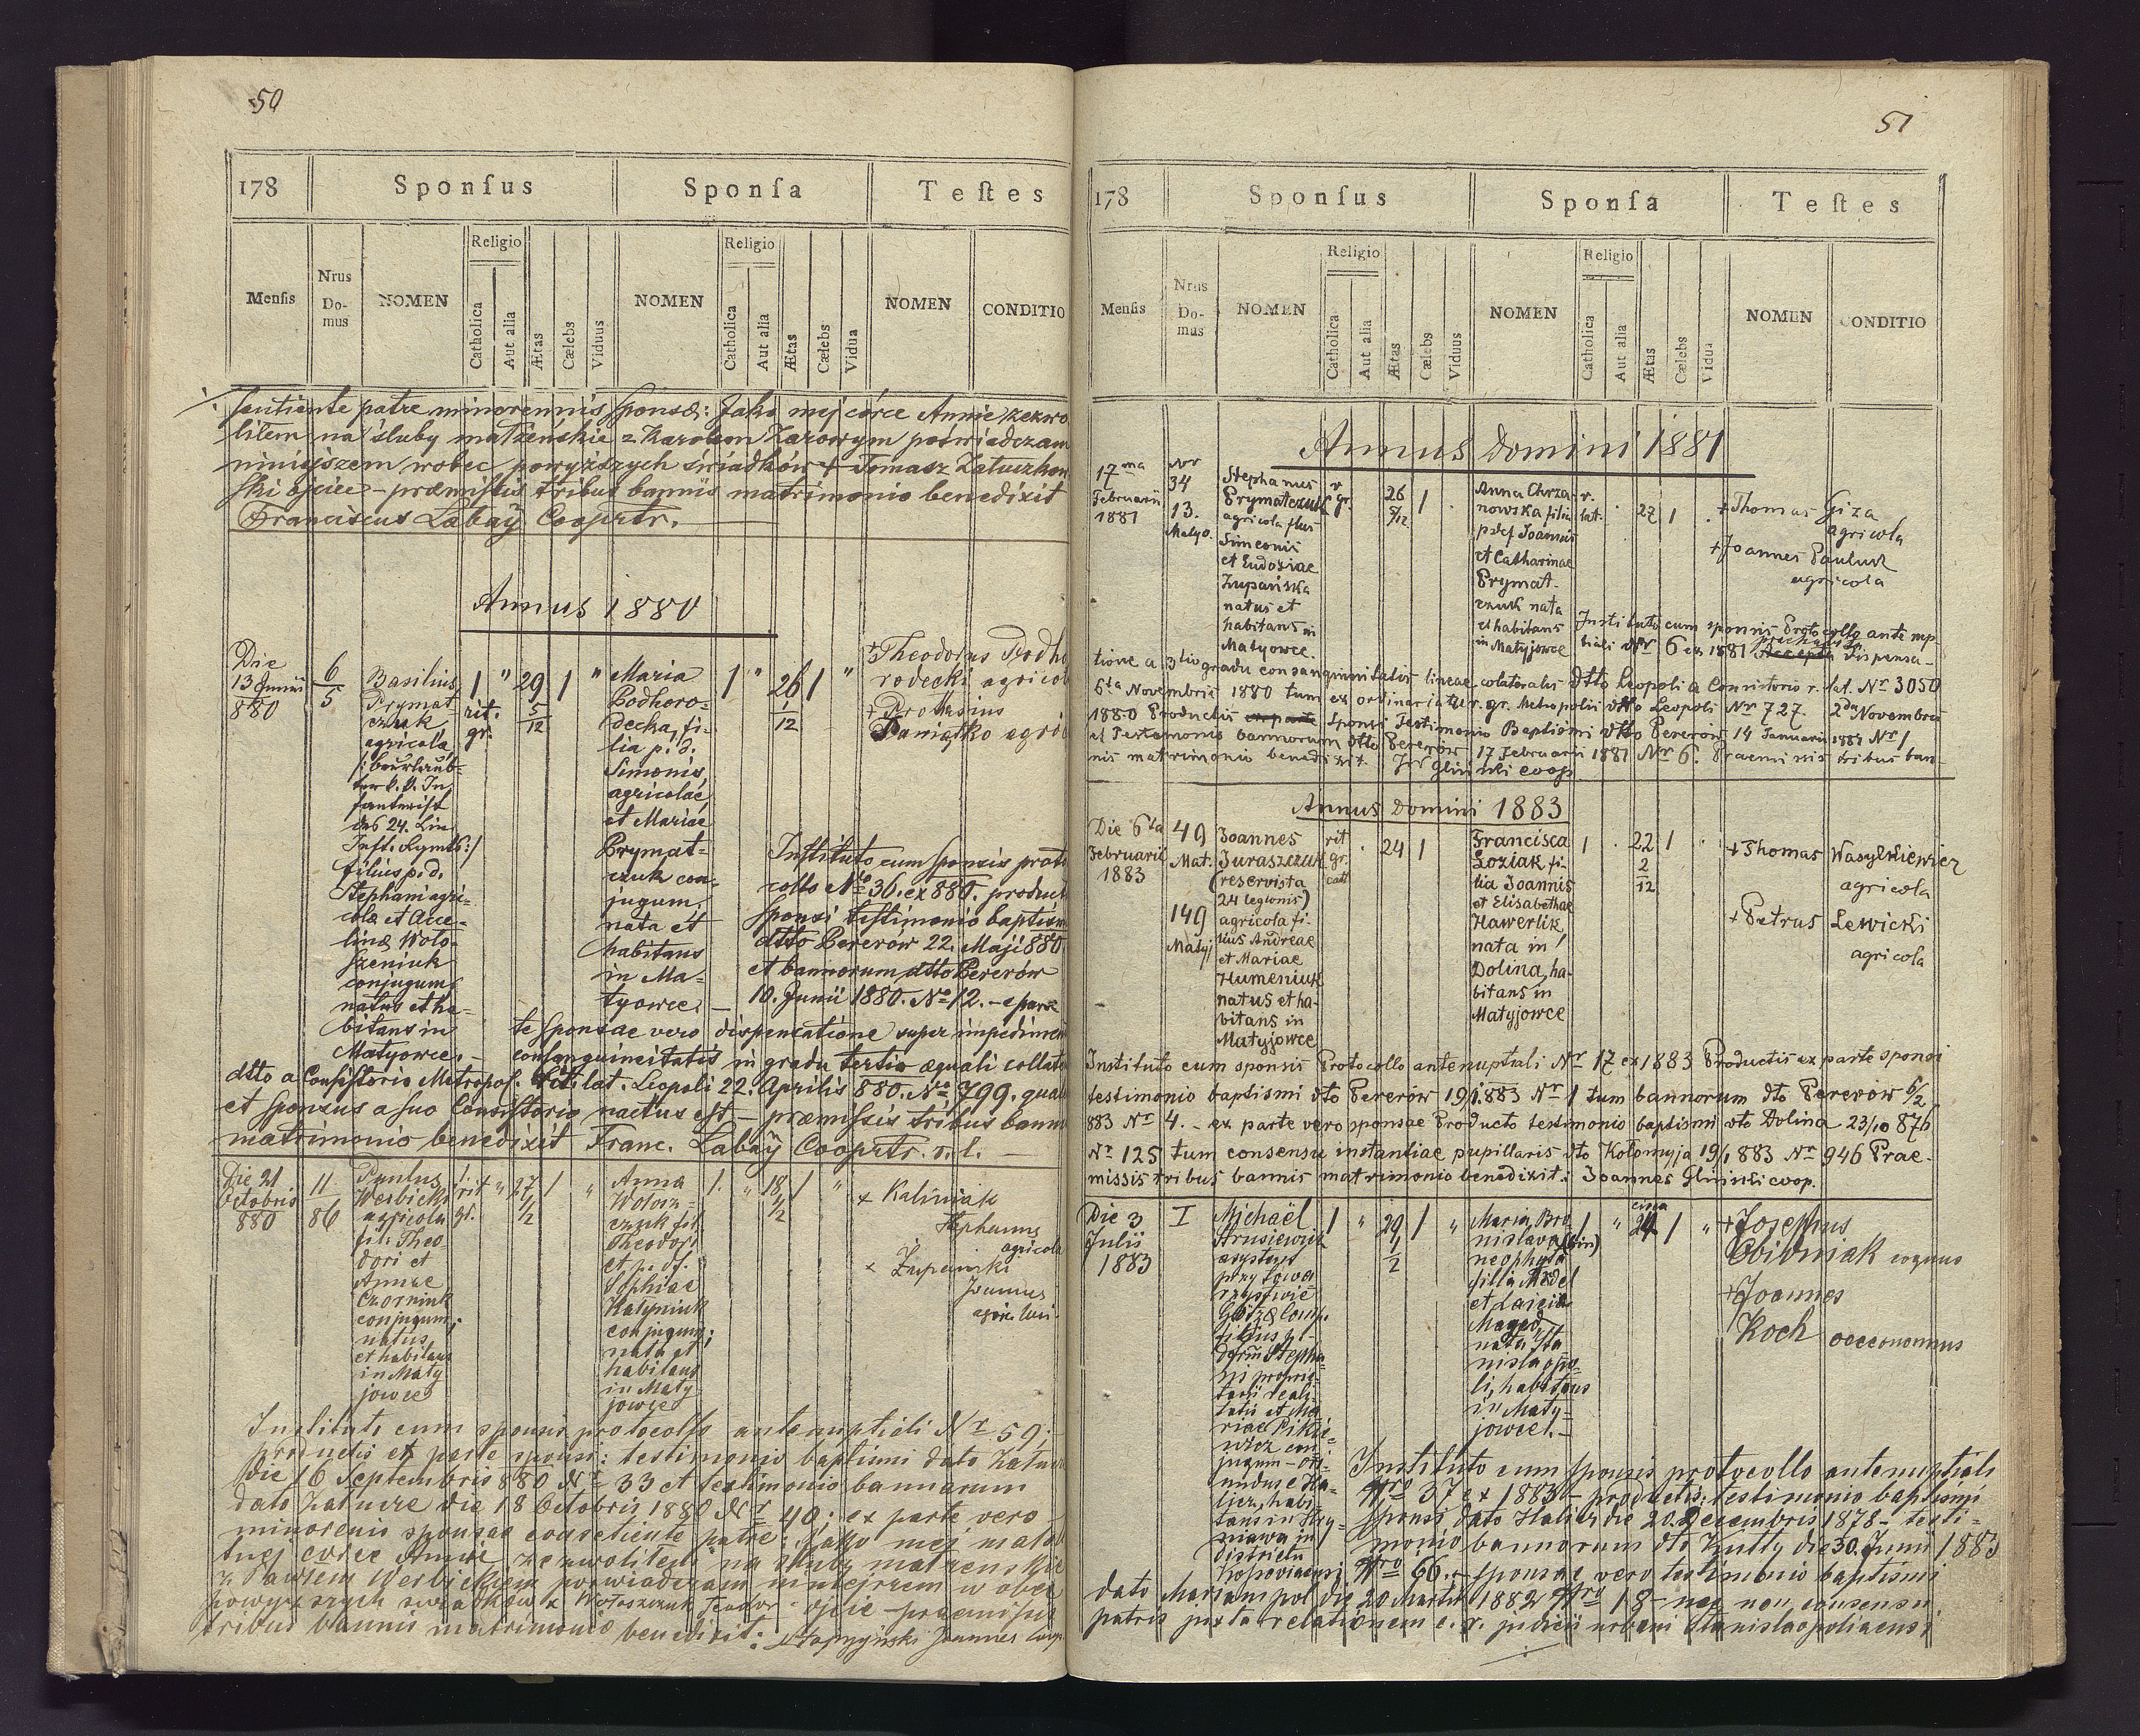 50
178
Sponſus
Sponſa
Teſtes
Menſis
Nrus Do-mus
NOMEN
Religio
Catholica
Aut alia
Ætas
Cælebs
Viduus
NOMEN
Religio
Catholica
Aut alia
Ætas
Cælebs
Vidua
NOMEN
CONDITIO
patre minorennis Sponsæ: Jako mej córce Annie zezwo
liłem na śluby małżeńskie z Karolem Zarowym poświadczam
niniejszem wobec powyższych świadków + Tomasz
ski ojciec – præmissis tribus bannis matrimonio benedixit
Franciscus Labaÿ Cooprtr.
Annus 1880
Die
13 Junii
880
6
5
Basilius
Prymat-
czuk
agricola
/: beurlaub-
ter k. k. In
fanterist
des 24. Lin.
Inft. Rgmts :/
filius p. d.
Stephani agri-
colæ et Acce-
linæ Woło-
szeniuk
conjugum,
natus et ha-
bitans in
Matyowce. –
1
rit.
gr.
"
29
5
12
1
"
Maria
Podhoro-
decka, fi-
lia p. d.
Simonis,
agricolae
et Mariae
Prymat-
czuk con-
jugum,
nata et
habitans
in Ma-
tyowce –
1
"
26
1
12
1
"
+ Theodorus Podho
rodecki agricol
+ Prothasius
Pamiątko agric
Instituto cum sponsis proto
collo No 36. ex 880. product
sponsi testimonio baptism
dtto Pererów 22. Maji 880
et bannorum dtto Pererów
10. Junii 1880. No 12. – e par
te sponsae vero dispensatione super impedimen
consanguineitatis in gradu tertio æquali collata
dtto a Consistorio Metropol. rit. lat. Leopoli 22. Aprilis 880. No 799. qual
et sponsus a suo Consistorio nactus est – præmissis tribus bann
matrimonio benedixit Franc. Labaÿ Cooprtr. r. l. –
Die 21
Octobris
880
11
86
Paulus
Werbicki
agricola
fil: Theo-
dori et
Annae
Czorniuk
conjugum;
natus
et habitans
in Maty
jowce
1.
rit
gr.
"
27
1/2
1
"
Anna
Wołosz-
czuk fil.
Theodori
et p. d.
Sophiae
Katyniuk
conjugum;
nata et
habitans
in Maty
jowce
1.
"
18
1/2
1
"
+ Kaliniak
Stephanus
agricola
+ Żupański
Joannes
agricola
Instituto cum sponsis protocollo antenuptiali Nr 59;
productis ex parte sponsi: testimonio baptismi dato
die 16 Septembris 880 Nr 33 et testimonio bannorum
dato die 18 Octobris 1880 Nr 40; ex parte vero
minorenis sponsae consetiente patre: Jako mej małol
tnej córce Annie zezwoliłem na śluby małżeńskie
z Pawłem Werbickiem poświadczam niniejszem w obec
powyższych świadków + Wołoszczuk Teodor ojciec – praemissis
tribus bannis matrimonio benedixit: Joannes Coop.
51
178
Sponſus
Sponſa
Teſtes
Menſis
Nrus Do-mus
NOMEN
Religio
Catholica
Aut alia
Ætas
Cælebs
Viduus
NOMEN
Religio
Catholica
Aut alia
Ætas
Cælebs
Vidua
NOMEN
CONDITIO
Annus Domini 1881
17ma
Februarii
1881
Nr
34
13.
Matyo.
Stephanus
Prymatczuk
agricola filius
Simeonis
et Eudoxiae
Żupańska
natus et
habitans in
Matyowce
r.
gr.
26
5/12
1
Anna Chrza-
nowska filia
p. def. Joannis
et Catharinae
Prymat-
czuk nata
et habitans
in Matyjowce
r.
lat.
27
1
+ Thomas Giza
agricola
+ Joannes Pauluk
agricola
Instituto cum sponsis Protocollo ante nup
tiali Nr 6 ex 1881 Dispensa-
tione a 3tio gradu consanguinitatis lineae colateralis dtto Leopoli a Consistorio r. lat. Nr 3050
6ta Novembris 1880 tum ex ordinariatu r. gr. Metropolis dtto Leopoli Nr 727. 2da Novembris
1880 Productis ex parte Sponsi Testimonio Baptismi dtto Pererów 14 Januarii 1881 Nr 1
et Testimonio bannorum dtto Pererów 17 Februarii 1881 Nr 6. Praemissis tribus ban-
nis matrimonio benedixit. Gliński coop
Annus Domini 1883
Die 6ta
Februarii
1883
49
Mat.
149
Matyj
Joannes
Juraszczuk
(reservista
24 legionis)
agricola fi-
lius Andreae
et Mariae
Humeniuk
natus et ha-
bitans in
Matyjowce
rit
gr.
cat
24
1
Francisca
Łoziak fi-
lia Joannis
et Elisabethae
Hawerlik,
nata in
Dolina, ha-
bitans in
Matyjowce
1
22
2
12
1
+ Thomas Wasylkiewicz
agricola
+ Petrus Lewicki
agricola
Instituto cum sponsis Protocollo antenuptiali Nr 17 ex 1883 Productis ex parte sponsi
testimonio baptismi dto Pererów 19/1.883 Nr 1 tum bannorum dto Pererów 6/2
883 Nr 4. – ex parte vero sponsae Producto testimonio baptismi dto Dolina 23/10 876
Nr 125 tum consensu instantiae pupillaris dto Kołomyja 19/1 883 Nr 946 Prae-
missis tribus bannis matrimonio benedixit: Joannes Gliński coop.
Die 3
Julii
1883
I
Michaël
Strusiewicz
asystent
przy towa-
rzystwie
Götz & Comp.
filius p.
def. Stepha-
ni proprie-
tarii reali-
tatis et Ma-
riae
conjugum – ori-
undus e Ha-
licz, habi-
tans in
in
districtu
Kossoviensi
1
"
29
1
2
1
"
Maria Bro-
nislava (bin)
neophyta
filia
et
nata Sta-
nislaopo-
li, habitans
in Maty-
jowce. –
1
"
circa
24
1
"
+ Josephus
coquus
+ Joannes
Koch oeconomus
Instituto cum sponsis protocollo antenuptiali
Nro 37 ex 1883 – productis: testimonio baptismi
sponsi dato Halicz die 20. Decembris 1878 – testi-
monio bannorum dto Kutty die 30. Junii 1883
Nro 66. – sponsae vero testimonio baptismi
dato Mariampol die 20 Martii 1882 Nro 18 – nec non consensu
patris juxta relationem c. r. judicii urbani Stanislaopoliensi